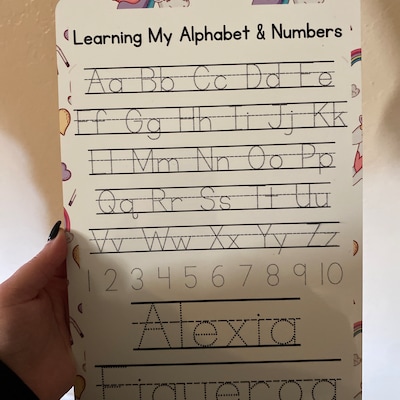 Learning My Alphabet & Numbers
Aa Bb Cc Dd Ee
Ff Gg Hh Ii Jj Kk
Ll Mm Nn Oo Pp
Qq Rr Ss Tt Uu
Vv Ww Xx Yy Zz
1 2 3 4 5 6 7 8 9 10
Alexia
Figueroa